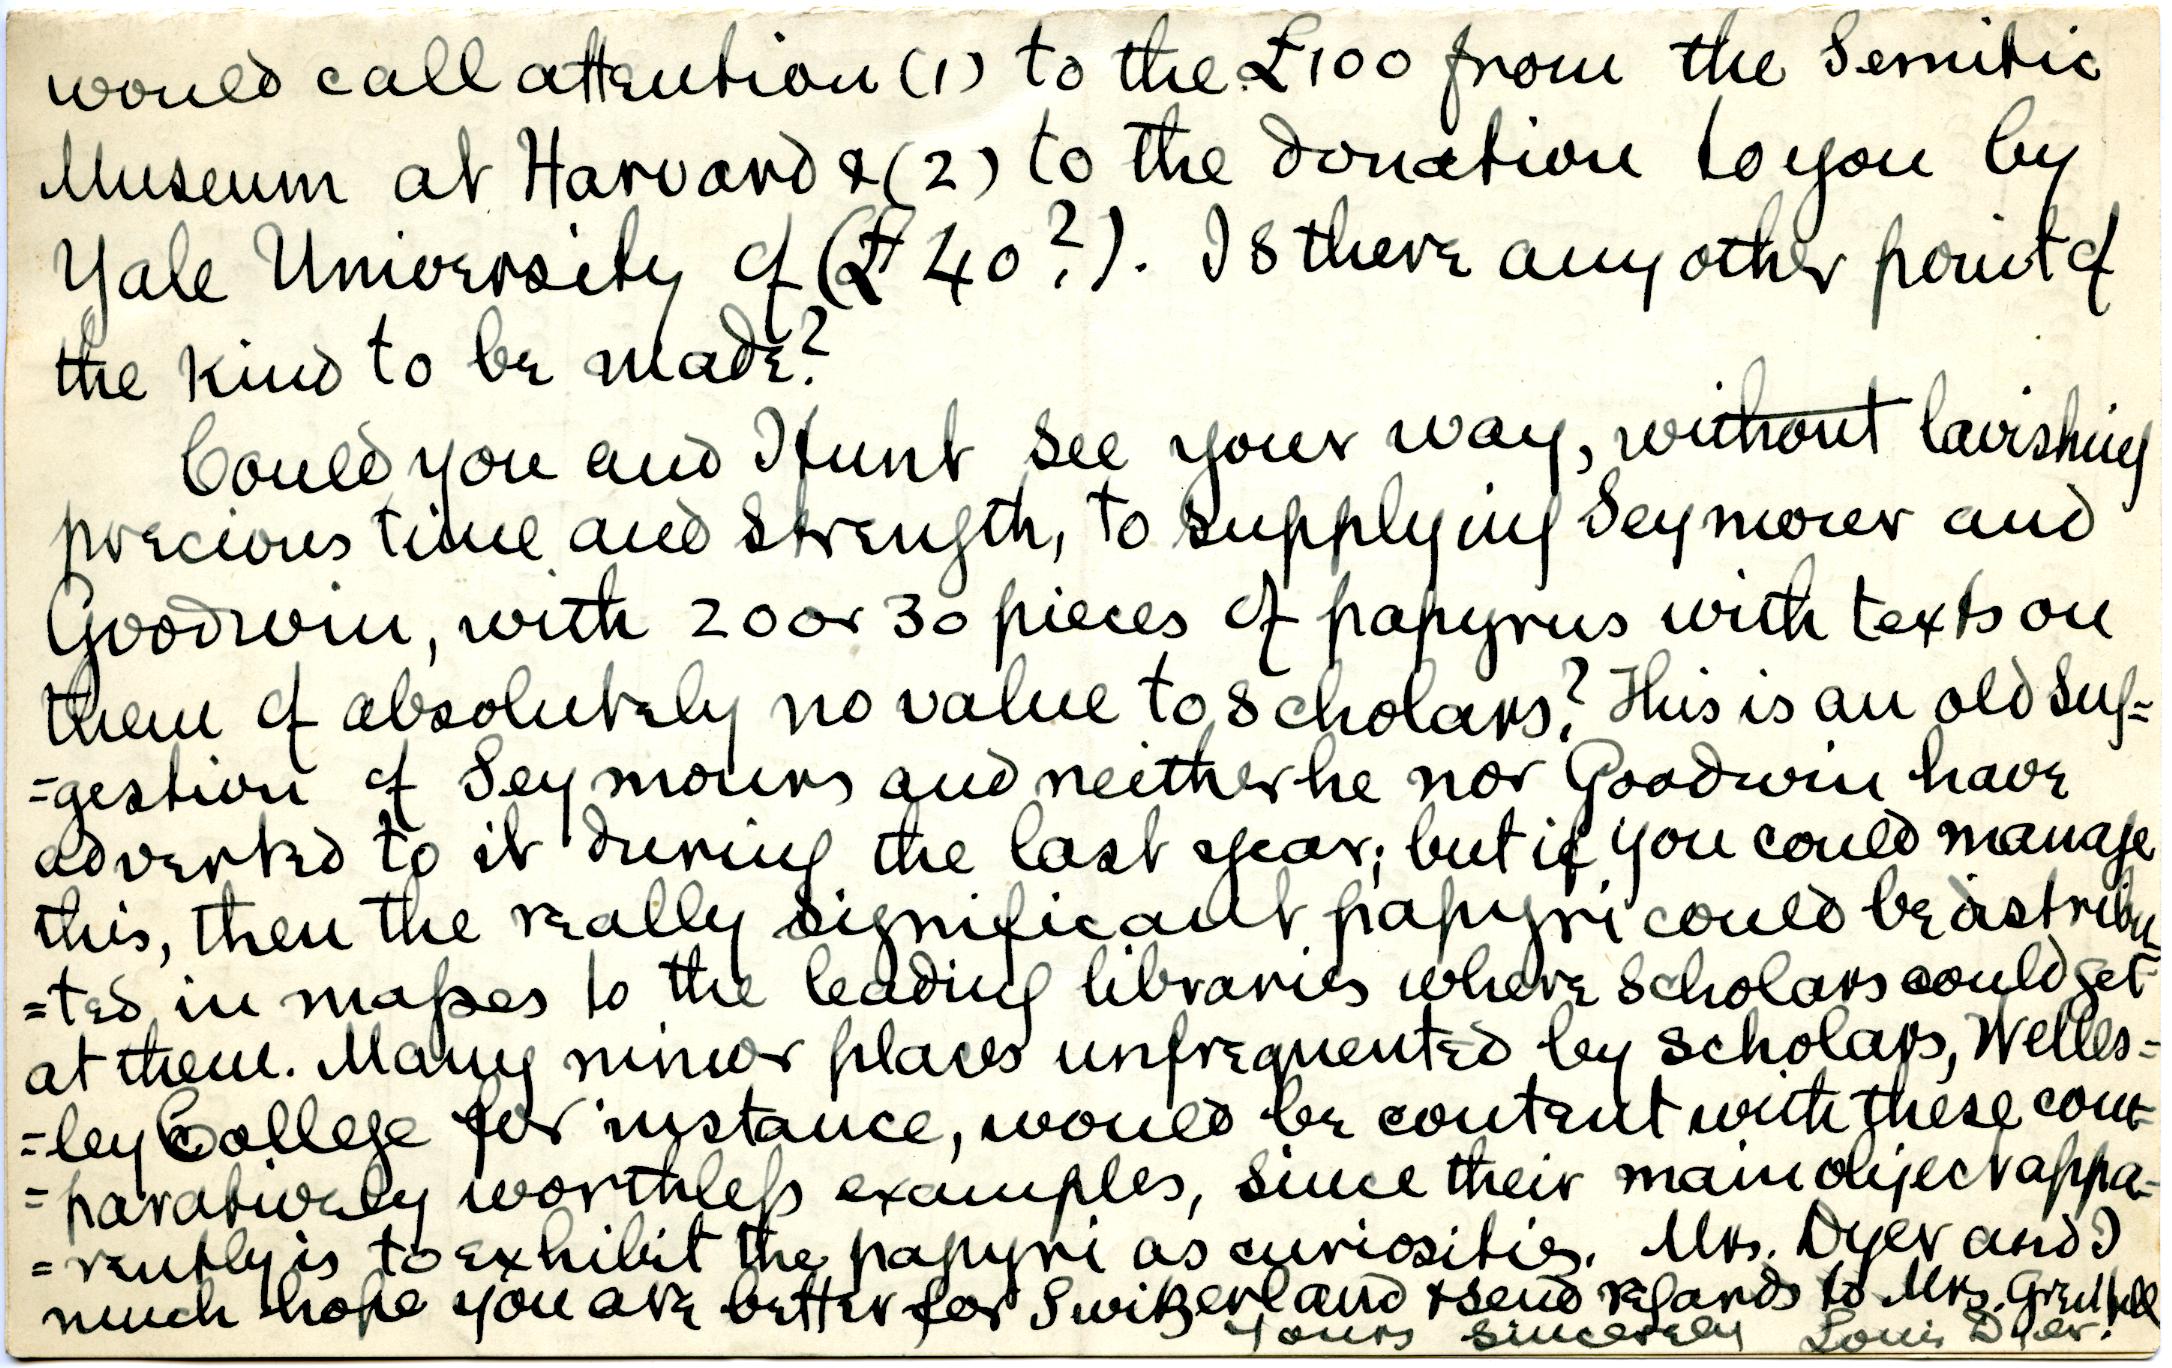 would call attention (1) to the £100 from the Semitic
Museum at Harvard & (2) to the donation to you by
Yale University of (£40?). Is there any other point of
the kind to be made?
Could you and Hunt see your way, without lavishing
precious time and strength, to supplying Seymour and
Goodwin, with 20 or 30 pieces of papyrus with texts on
them of absolutely no value to scholars? This is an old sug=
=gestion of Seymours and neither he nor Goodwin have
adverted to it during the last year; but if you could manage
this, then the really significant papyri could be distribu=
=ted in masses to the leading libraries where scholars could get
at them. Many minor places unfrequented by scholars, Welles=
=ley College for instance, would be content with these com=
=paratively worthless examples, since their main object appa=
=rently is to exhibit the papyri as curiosities. Mrs. Dyer and I
much hope you are better for Switzerland & send regards to Mrs. Grenfell
Yours sincerely Louis Dyer.